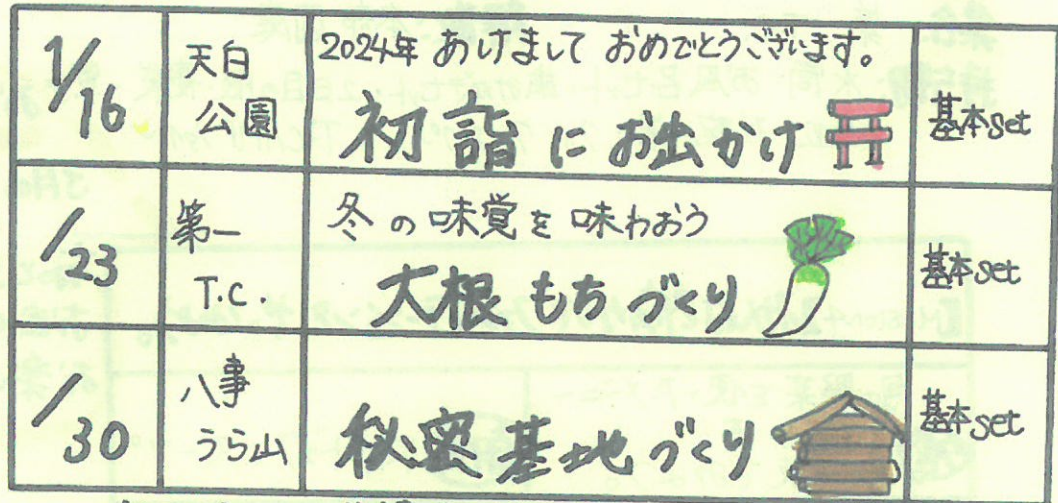 1/16
天白
公園
2024年 あけまして おめでとうございます。
初詣にお出かけ
基本set
/23
第一
T.C.
冬の味覚を味わおう
大根もちづくり
基本set
/30
八事
うら山
秘密基地づくり
基本set